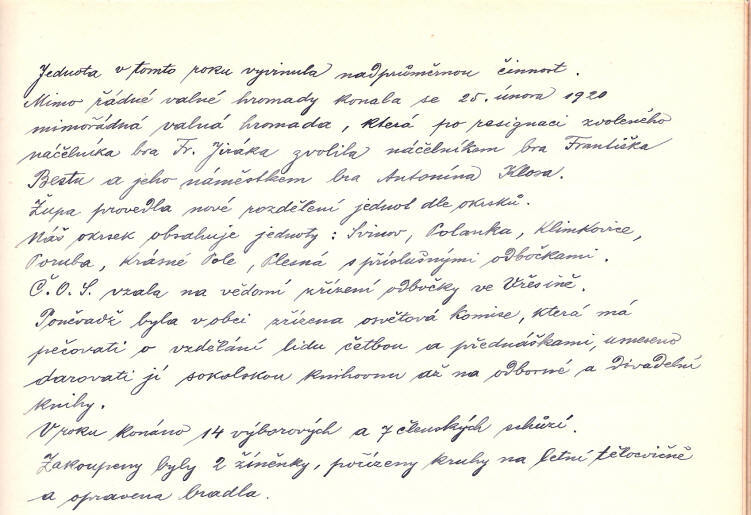 Jednota v tomto roku vyvinula nadprůměrnou činnost.
Mimo řádné valné hromady konala se 25. února 1920
mimořádná valná hromada, která po resignaci zvoleného
náčelníka bra Fr. Jiráka zvolila náčelníkem bra Františka
Bestu a jeho náměstkem bra Antonína Klosa.
Župa provedla nové rozdělení jednot dle okrsků.
Náš okrsek obsahuje jednoty: Svinov, Polanka, Klimkovice,
Poruba, Krásné Pole, Plesná s příslušnými odbočkami.
Č.O.S. vzala na vědomí zřízení odbočky ve Vřesině.
Poněvadž byla v obci zřízena osvětová komise, která má
pečovati o vzdělání lidu četbou a přednáškami, usneseno
darovati jí sokolskou knihovnu až na odborné a divadelní
knihy.
V roku konáno 14 výborových a 7 členských schůzí.
Zakoupeny byly 2 žíněnky, pořízeny kruhy na letní tělocvičně
a opravena bradla.